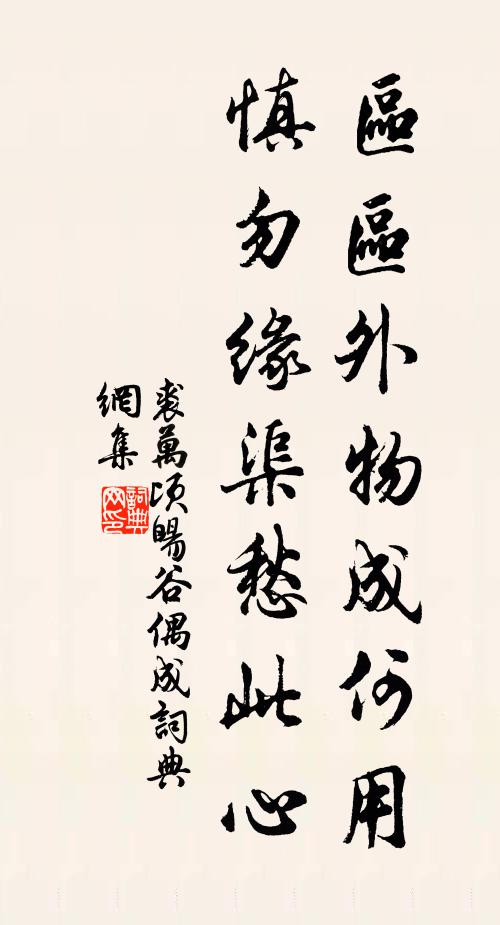 區區外物成何用
慎勿緣渠愁此心
裘萬頃暘谷偶成詞典
網集
詞典
网印